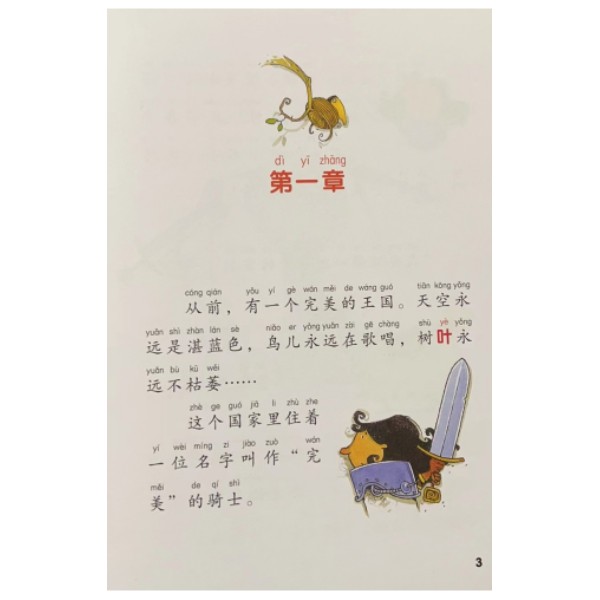 dì yī zhāng
第一章
cóng qián yǒu yí gè wán měi de wáng guó tiān kōng yǒng
从前，有一个完美的王国。天空永
yuǎn shì zhàn lán sè niǎo er yǒng yuǎn zài gē chàng shù yè yǒng
远是湛蓝色，鸟儿永远在歌唱，树叶永
yuǎn bù kū wěi
远不枯萎……
zhè ge guó jiā li zhù zhe
这个国家里住着
yí wèi míng zi jiào zuò wán
一位名字叫作“完
měi de qí shì
美”的骑士。
3